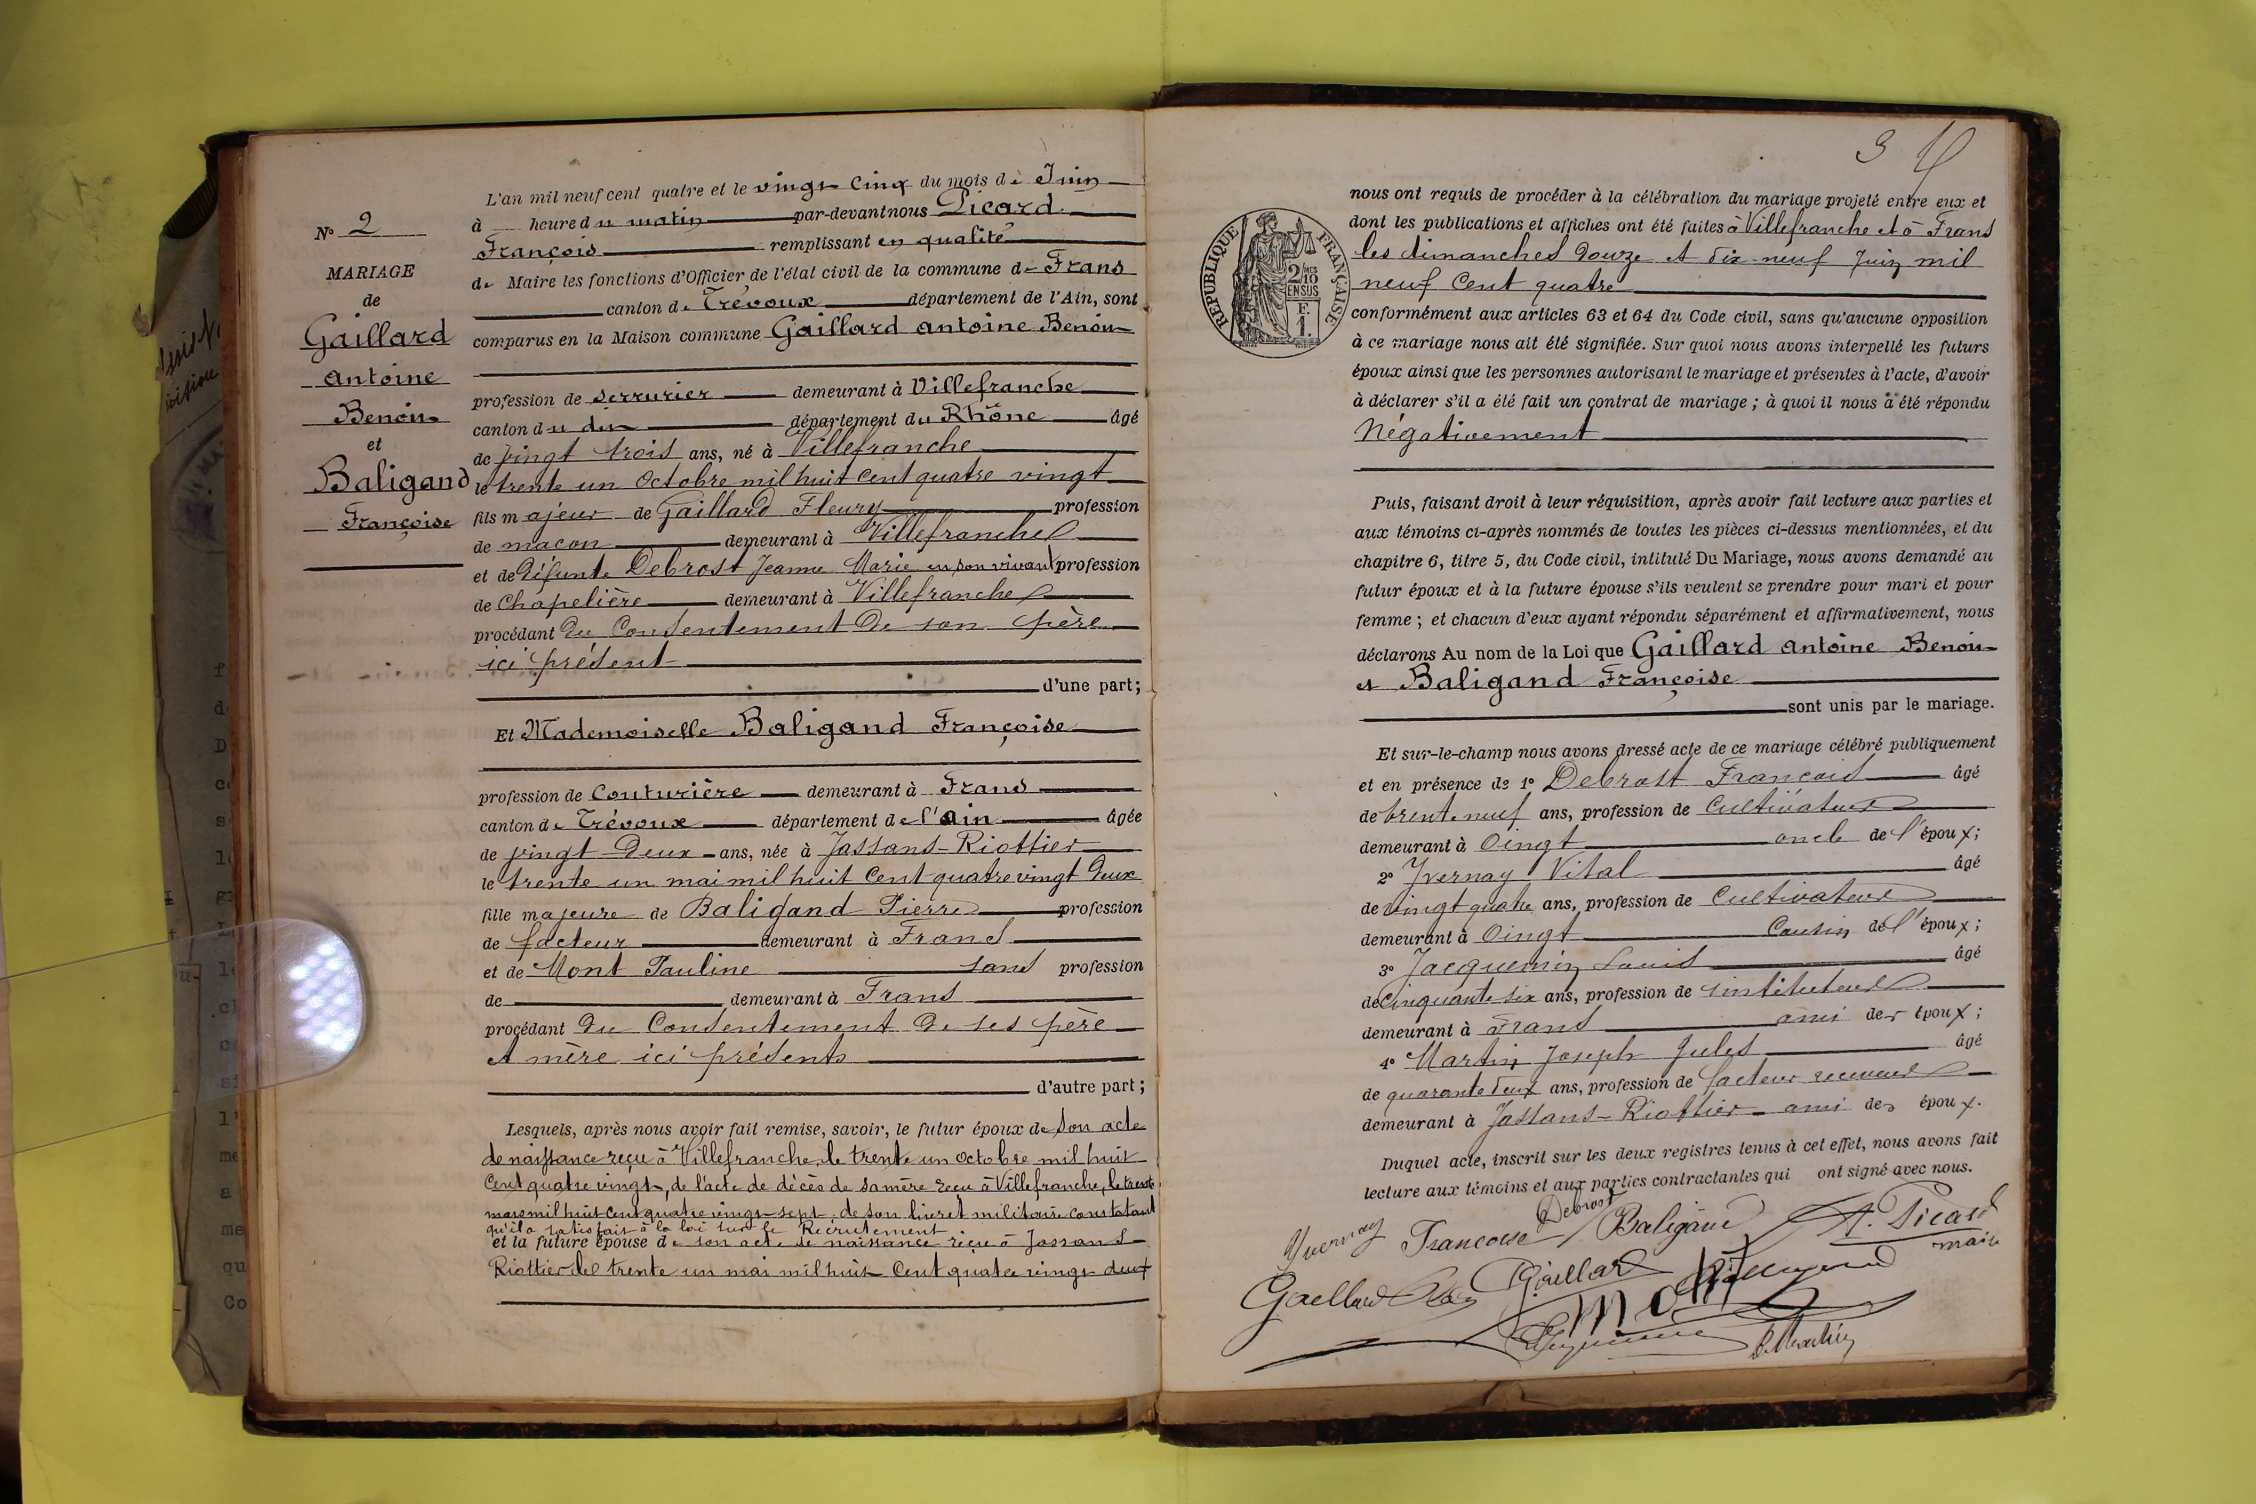 N° 2
MARIAGE
de
Gaillard
Antoine
Benoit
et
Baligand
Françoise
L'an mil neuf cent quatre et le vingt cinq du mois de Juin
à heure du matin par-devant nous Picard
François remplissant en qualité
de Maire les fonctions d'Officier de l'état civil de la commune de Frans
canton de Trévoux département de l'Ain, sont
comparus en la Maison commune Gaillard Antoine Benoit
profession de serrurier demeurant à Villefranche
canton du dit département du Rhône âgé
de vingt trois ans, né à Villefranche
le trente un Octobre mil huit cent quatre vingt
fils majeur de Gaillard Fleury profession
de maçon demeurant à Villefranche
et de défunte Debrost Jeanne Marie en son vivant profession
de Chapelière demeurant à Villefranche
procédant du Consentement de son père
ici présent
d'une part;
Et Mademoiselle Baligand Françoise
profession de Couturière demeurant à Frans
canton de Trévoux département de l'Ain âgée
de vingt Deux ans, née à Jassans-Riottier
le trente un mai mil huit Cent quatre vingt Deux
fille majeure de Baligand Pierre profession
de facteur demeurant à Frans
et de Mont Pauline sans profession
de demeurant à Frans
procédant du Consentement de ses père
et mère ici présents
d'autre part;
Lesquels, après nous avoir fait remise, savoir, le futur époux de son acte
de naissance reçu à Villefranche, le trente un octobre mil huit
Cent quatre vingt, de l'acte de décès de sa mère reçu à Villefranche, le trente
mars mil huit cent quatre vingt sept, de son livret militaire constatant
qu'il a satisfait à la loi sur le Recrutement.
et la future épouse de son acte de naissance reçu à Jassans
Riottier le trente un mai mil huit Cent quatre vingt deux
3
RÉPUBLIQUE FRANÇAISE
2/10
EN SUS
F.
1.
nous ont requis de procéder à la célébration du mariage projeté entre eux et
dont les publications et affiches ont été faites à Villefranche et à Frans
les dimanches douze et dix neuf Juin mil
neuf Cent quatre
conformément aux articles 63 et 64 du Code civil, sans qu'aucune opposition
à ce mariage nous ait été signifiée. Sur quoi nous avons interpellé les futurs
époux ainsi que les personnes autorisant le mariage et présentes à l'acte, d'avoir
à déclarer s'il a été fait un contrat de mariage ; à quoi il nous a été répondu
Négativement
Puis, faisant droit à leur réquisition, après avoir fait lecture aux parties et
aux témoins ci-après nommés de toutes les pièces ci-dessus mentionnées, et du
chapitre 6, titre 5, du Code civil, intitulé Du Mariage, nous avons demandé au
futur époux et à la future épouse s'ils veulent se prendre pour mari et pour
femme ; et chacun d'eux ayant répondu séparément et affirmativement, nous
déclarons Au nom de la Loi que Gaillard Antoine Benoit
et Baligand Françoise
sont unis par le mariage.
Et sur-le-champ nous avons dressé acte de ce mariage célébré publiquement
et en présence de 1° Debrost François âgé
de trente neuf ans, profession de Cultivateur
demeurant à Oingt oncle de l'époux;
2° Yvernay Vital âgé
de vingt quatre ans, profession de Cultivateur
demeurant à Oingt Cousin de l'époux;
3° Jacquemin Louis âgé
de Cinquante six ans, profession de instituteur
demeurant à Frans ami des époux;
4° Martin Joseph Jules âgé
de quarante deux ans, profession de facteur receveur
demeurant à Jassans-Riottier ami des époux.
Duquel acte, inscrit sur les deux registres tenus à cet effet, nous avons fait
lecture aux témoins et aux parties contractantes qui ont signé avec nous.
Yvernay Françoise Debrost Baligand Picard
maire
Gaillard Gaillard
Mont
Martin